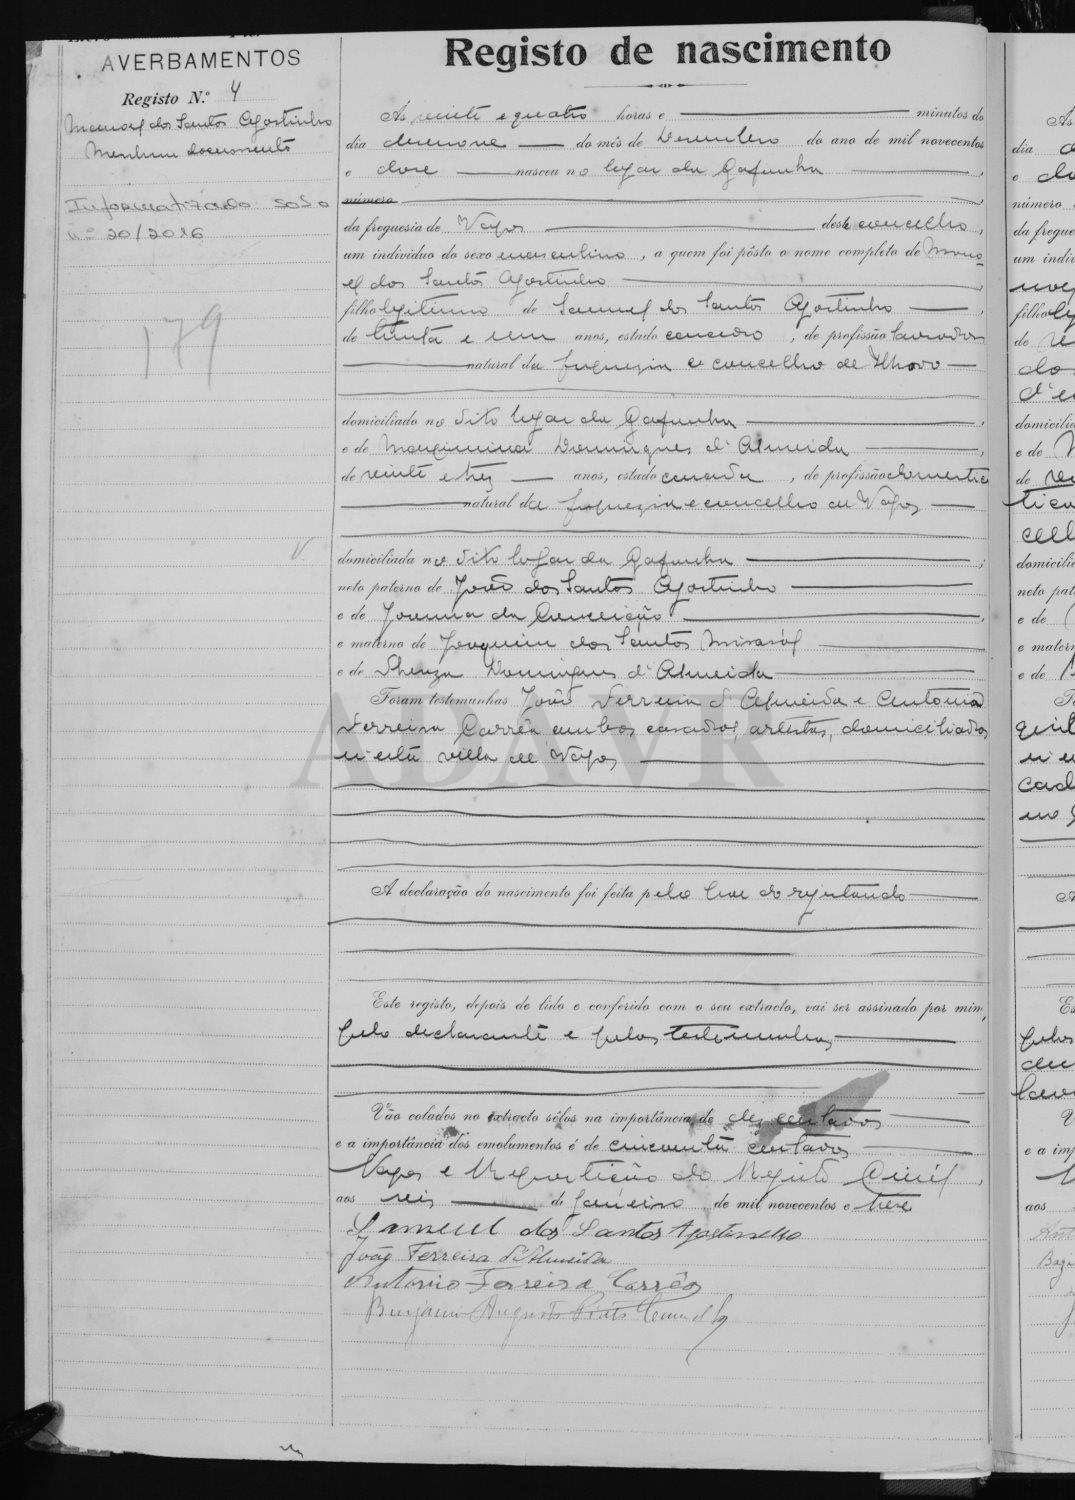 AVERBAMENTOS
Registo N.º 4
Manoel dos Santos Agostinho
Nenhum documento
Informatizado sob o
n.º 20/2016
179
Registo de nascimento
Ás vinte e quatro horas e minutos do
dia dezenove do mês de Dezembro do ano de mil novecentos
e doze nasceu no logar da Gafanha,
número
da freguesia de Vagos deste concelho,
um individuo do sexo masculino, a quem foi pôsto o nome completo de Mano-
el dos Santos Agostinho
filho legitimo de Samuel dos Santos Agostinho,
de trinta e um anos, estado casado, de profissão lavrador
natural da freguezia e concelho de Ilhavo
domiciliado no dito logar da Gafanha,
e de Maximina Domingues d'Almeida,
de vinte e trez anos, estado casada, de profissão domestica
natural da freguezia e concelho de Vagos
domiciliada no dito logar da Gafanha;
neto paterno de João dos Santos Agostinho
e de Joanna da Conceição,
e materno de Joaquim dos Santos
e de Thereza Domingues d'Almeida
Foram testemunhas João Ferreira d'Almeida e Antonio
Ferreira Corrêa ambos casados, artistas, domiciliados
n'esta villa de Vagos
ADAVR
A declaração do nascimento foi feita pelo pae do registando
Este registo, depois de lido e conferido com o seu extracto, vai ser assinado por mim,
pelo declarante e pelas testemunhas
Vão colados no extracto sêlos na importância de dez centavos
e a importância dos emolumentos é de cincoenta centavos
Vagos e Repartição do Registo Civil,
aos seis de Janeiro de mil novecentos e treze
Samuel dos Santos Agostinho
João Ferreira d'Almeida
Antonio Ferreira Corrêa
Benjamin Augusto